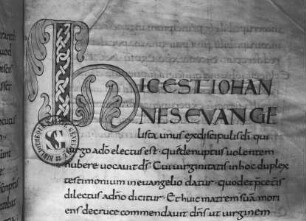 HIC EST IOHAN
NES EVANGE
lista, unus ex discipulis di. qui
virgo a do electus est. que de nuptiis volentem
nubere vocavit ds. Cui virginitatis in hoc duplex
testimonium in evangelio datur. quod et prę ceteris
dilectus a dno dicitur. Et huic matrem suā mori
ens de cruce commendavit dns ut virginem